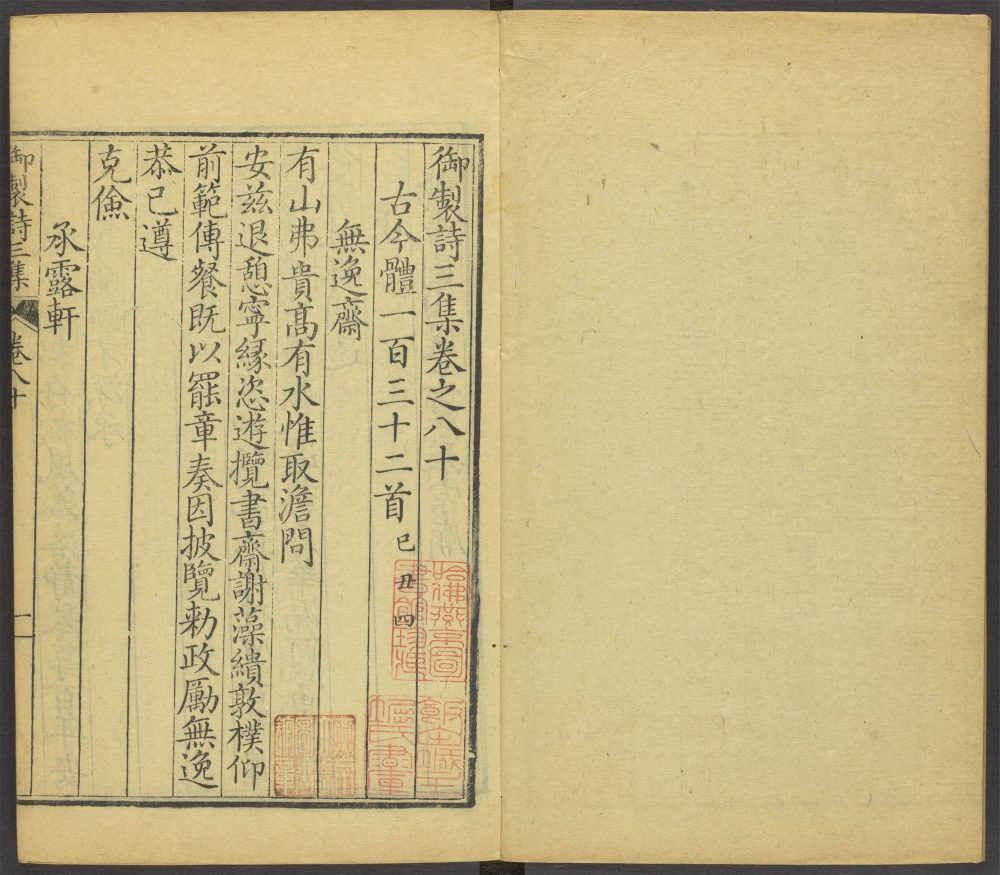 御製詩三集卷之八十
古今體一百三十二首己丑四
無逸齋
有山弗貴高有水惟取澹問
安兹退憩寧緣恣遊攬書齋謝藻繢敦樸仰
前範傳餐既以罷章奏因披覽勅政勵無逸
恭己遵
克儉
承露軒
御製詩三集 卷八十 一
哈佛燕京圖書館珍藏